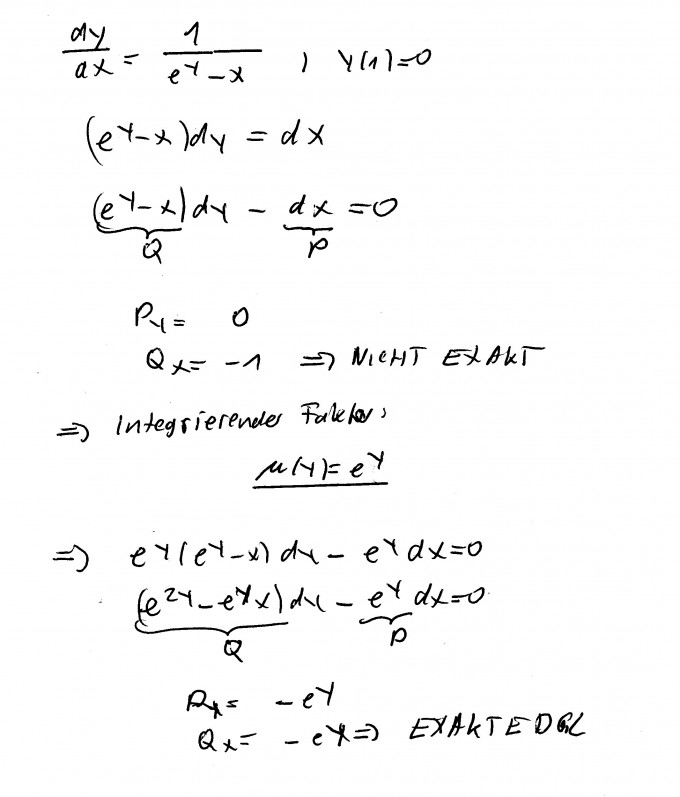 dy/dx = 1/(e^y - x) ; y(1)=0
(e^y - x)dy = dx
(e^y - x)dy - dx = 0
Q P
P_y = 0
Q_x = -1 => NICHT EXAKT
=> Integrierender Faktor:
μ(y) = e^y
=> e^y(e^y - x) dy - e^y dx = 0
(e^{2y} - e^y x) dy - e^y dx = 0
Q P
P_y = -e^y
Q_x = -e^y => EXAKTE DGL